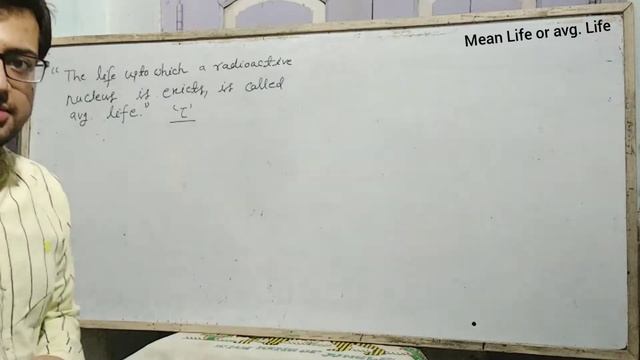 Mean Life or avg. Life
"The life upto which a radioactive
nucleus is exists, is called
avg. life." 'τ'